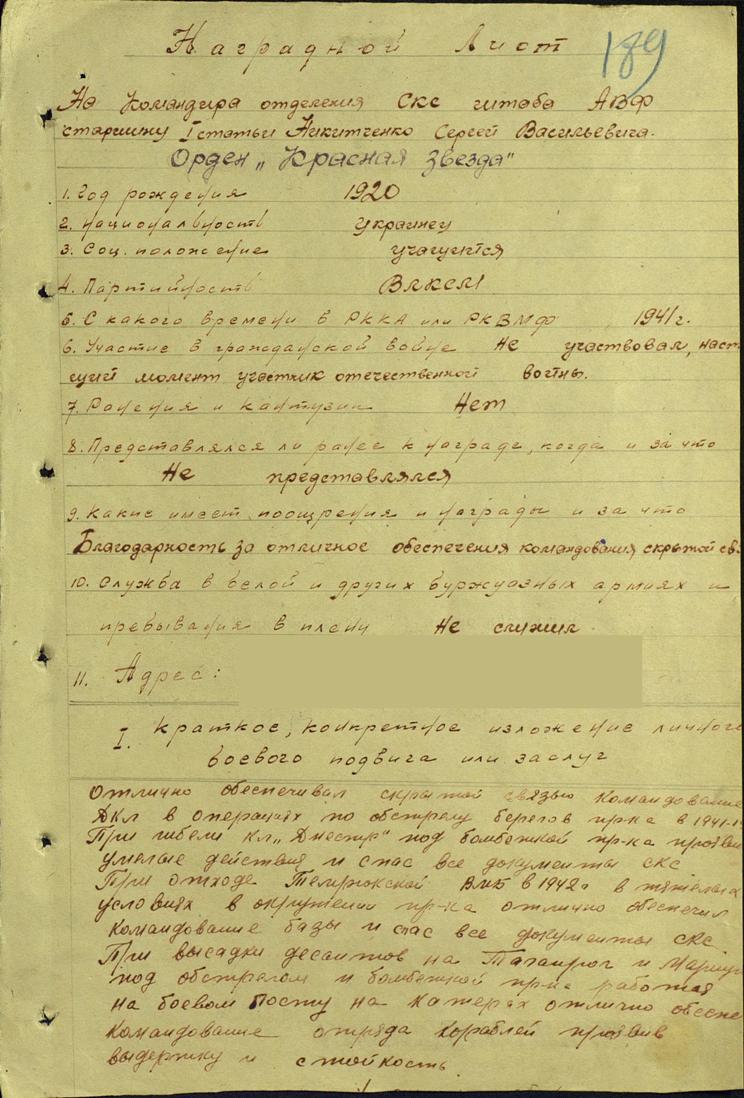 Наградной Лист
189
На Командира отделения СКС штаба АВФ
старшину I статьи Никитченко Сергей Васильевича.
Орден „Красная Звезда"
1. Год рождения 1920
2. Национальность украинец
3. Соц. положение учащийся
4. Партийность ВЛКСМ
5. С какого времени в РККА или РКВМФ 1941 г.
6. Участие в гражданской войне Не участвовал, наст
щий момент участник отечественной войны.
7. Ранения и контузии Нет
8. Представлялся ли ранее к награде, когда и за что
Не представлялся
9. Какие имеет поощрения и награды и за что
Благодарность за отличное обеспечения командования скрытой св
10. Служба в белой и других буржуазных армиях и
пребывания в плену Не служил
11. Адрес:
I. Краткое, конкретное изложение личного
боевого подвига или заслуг
Отлично обеспечивал скрытой связью командование
ДКЛ в операциях по обстрелу берегов пр-ка в 1941-
При гибели кл „Днестр" под бомбежкой пр-ка прояви
умелые действия и спас все документы СКС
При отходе Темрюкской ВМБ в 1942г в тяжелых
условиях в окружении пр-ка отлично обеспечил
командование базы и спас все документы СКС
При высадки десантов на Таганрог и Мариу
под обстрелом и бомбежкой пр-ка работая
на боевом посту на катерах отлично обеспе
командование отряда кораблей проявив
выдержку и стойкость.